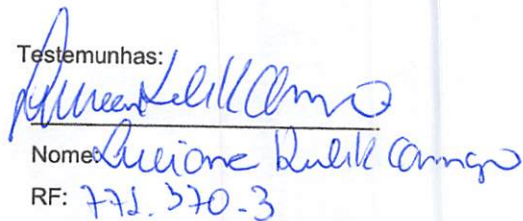 Testemunhas:
Nome: Luciane Kulik Camargo
RF: 771.370-3